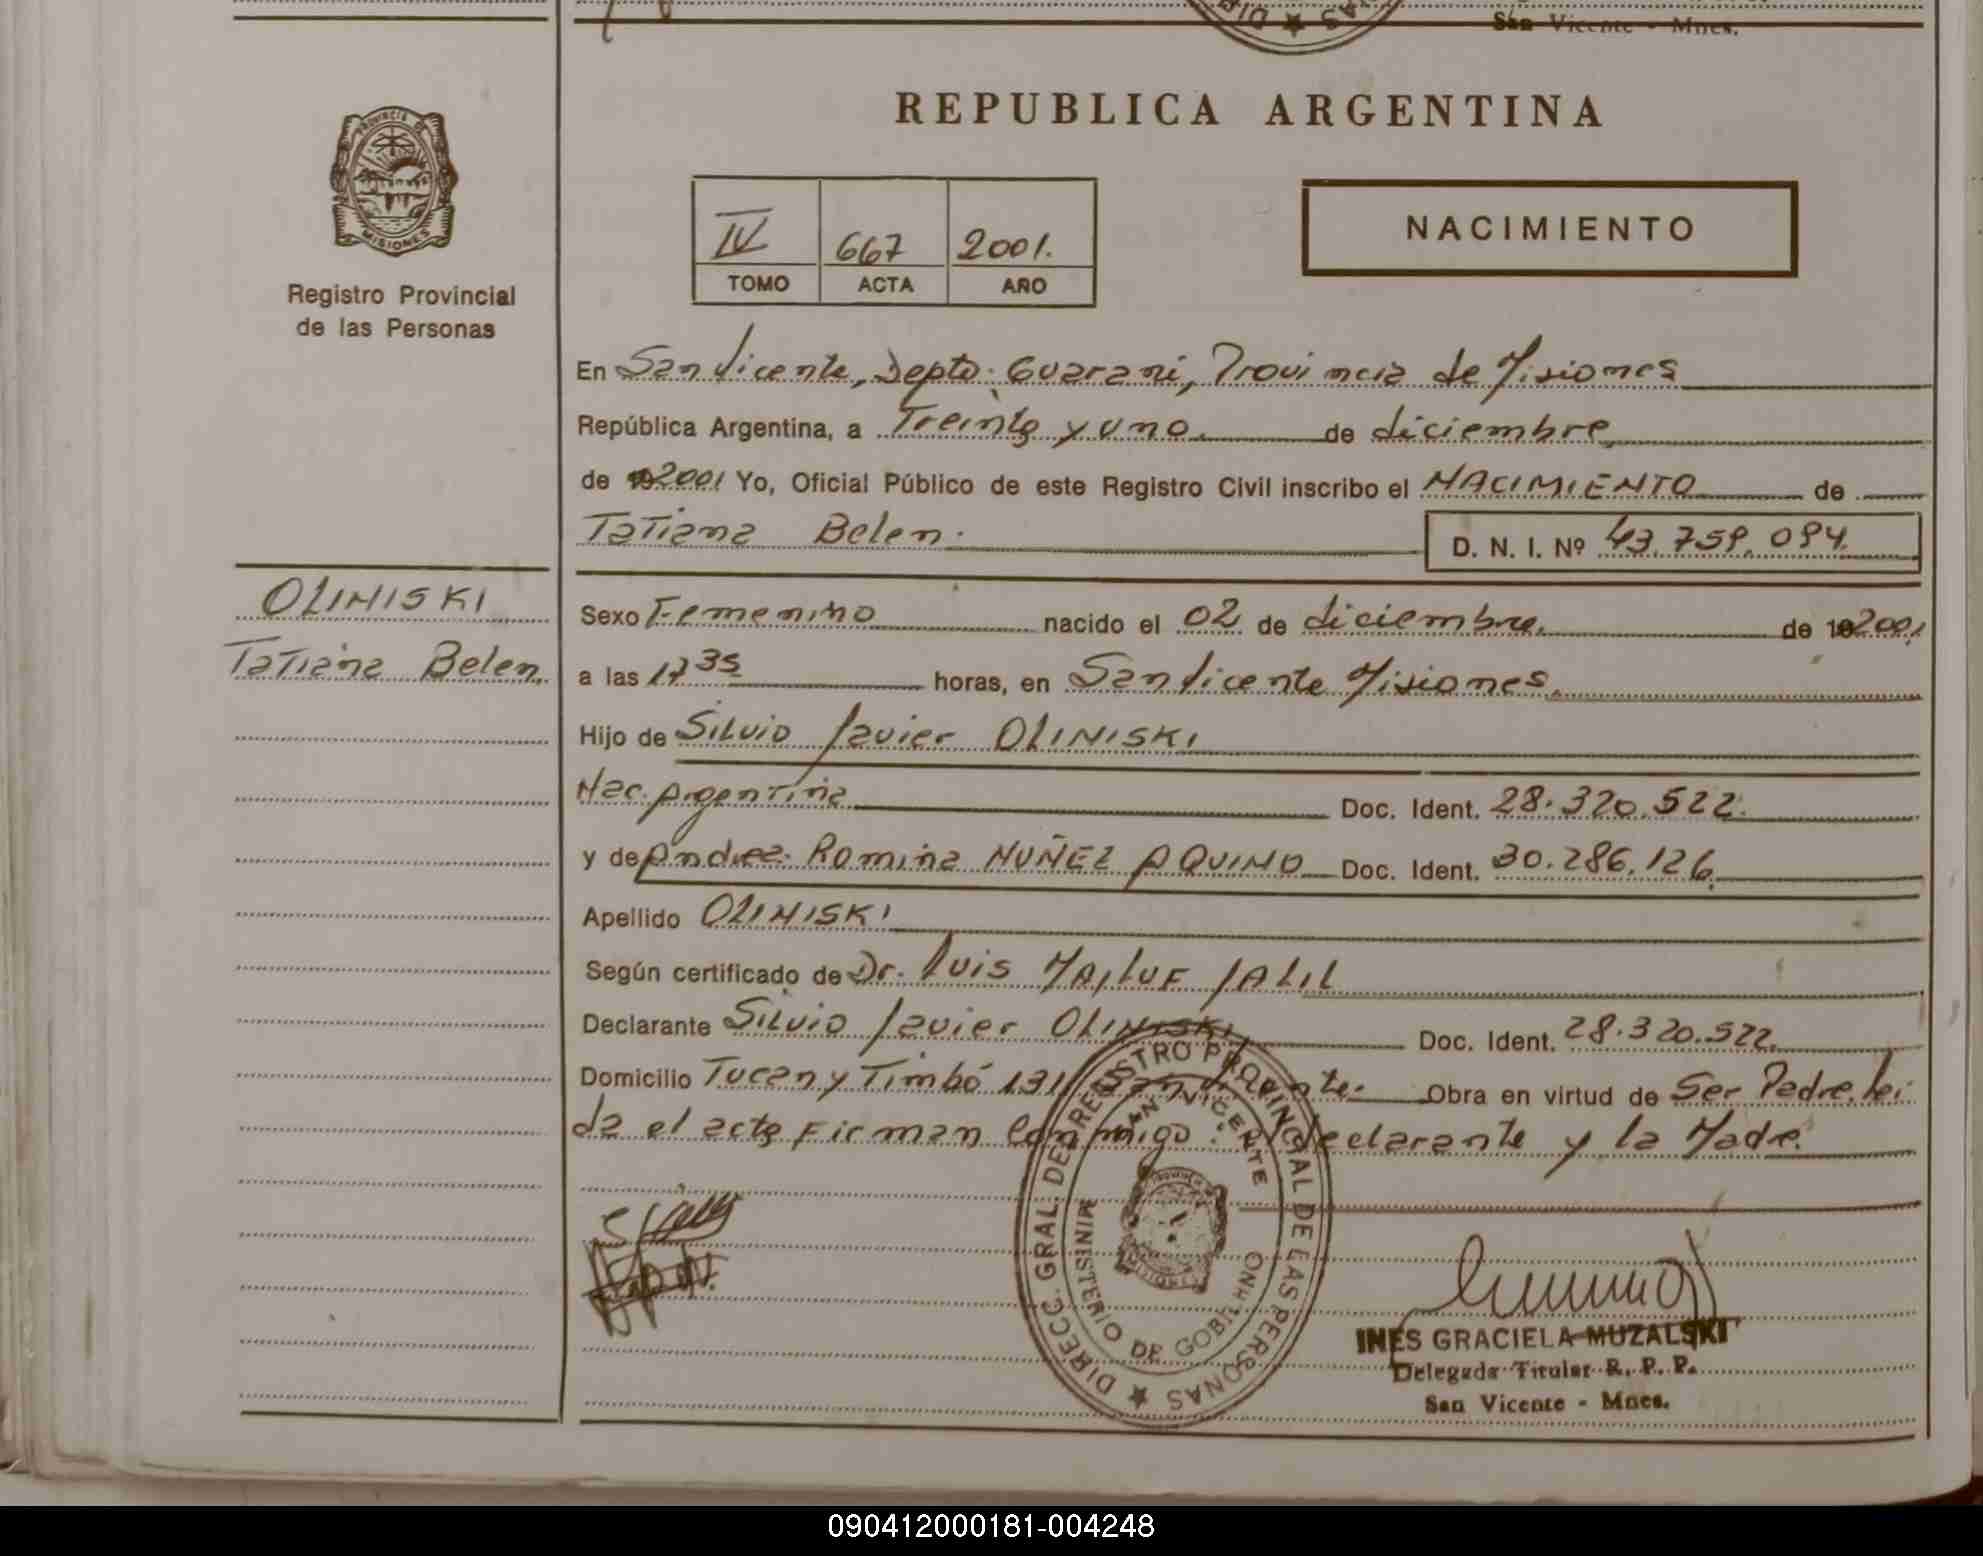 San Vicente - Mnes.
REPUBLICA ARGENTINA
PROVINCIA DE
MISIONES
Registro Provincial
de las Personas
IV 667 2001.
TOMO ACTA AÑO
NACIMIENTO
En San Vicente, Depto. Guarani, Provincia de Misiones
República Argentina, a Treinta y uno. de diciembre,
de 2001 Yo, Oficial Público de este Registro Civil inscribo el NACIMIENTO de
Tatiana Belen. D. N. I. Nº 43.759.094.
OLINISKI
Tatiana Belen.
Sexo Femenino nacido el 02 de diciembre. de 2001
a las 17 35 horas, en San Vicente Misiones.
Hijo de Silvio Javier OLINISKI
Nac. Argentina Doc. Ident. 28.320.522.
y de Andrea Romina NUÑEZ AQUINO Doc. Ident. 30.286.126.
Apellido OLINISKI
Según certificado de Dr. Luis MAILUF JALIL
Declarante Silvio Javier OLINISKI Doc. Ident. 28.320.522.
Domicilio Tucan y Timbó 131 San Vicente. Obra en virtud de Ser Padre. lei
da el acta Firman Conmigo. Declarante y la Madre.
DIRECC. GRAL. DE REGISTRO PROVINCIAL DE LAS PERSONAS
SAN VICENTE
MINISTERIO DE GOBIERNO
MISIONES
INES GRACIELA MUZALSKI
Delegada Titular R. P. P.
San Vicente - Mnes.
090412000181-004248